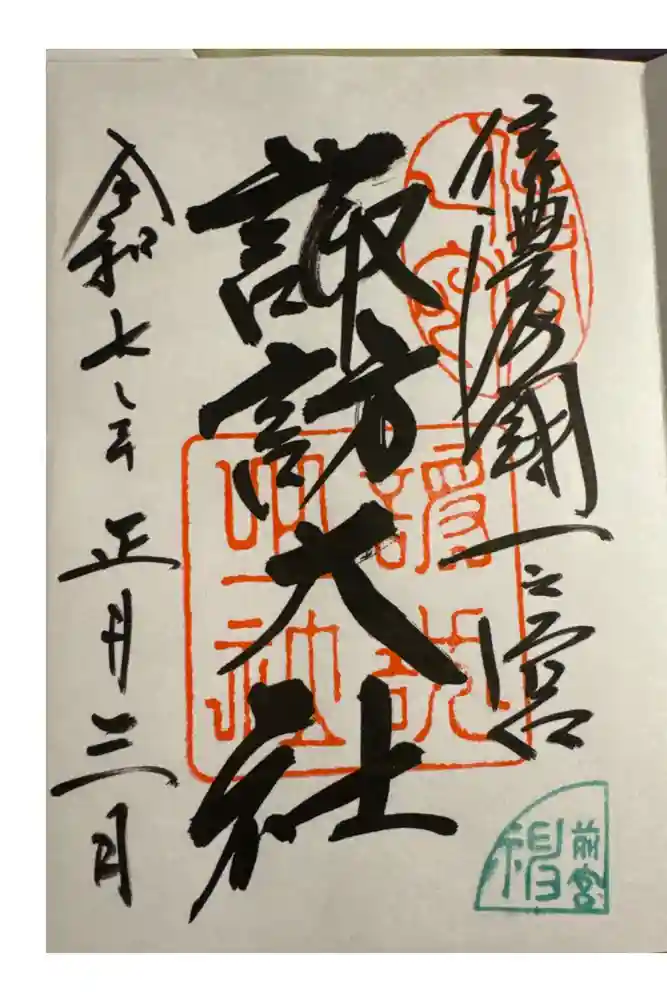 信濃國一之宮
諏訪大社
令和七年正月三日
前宮